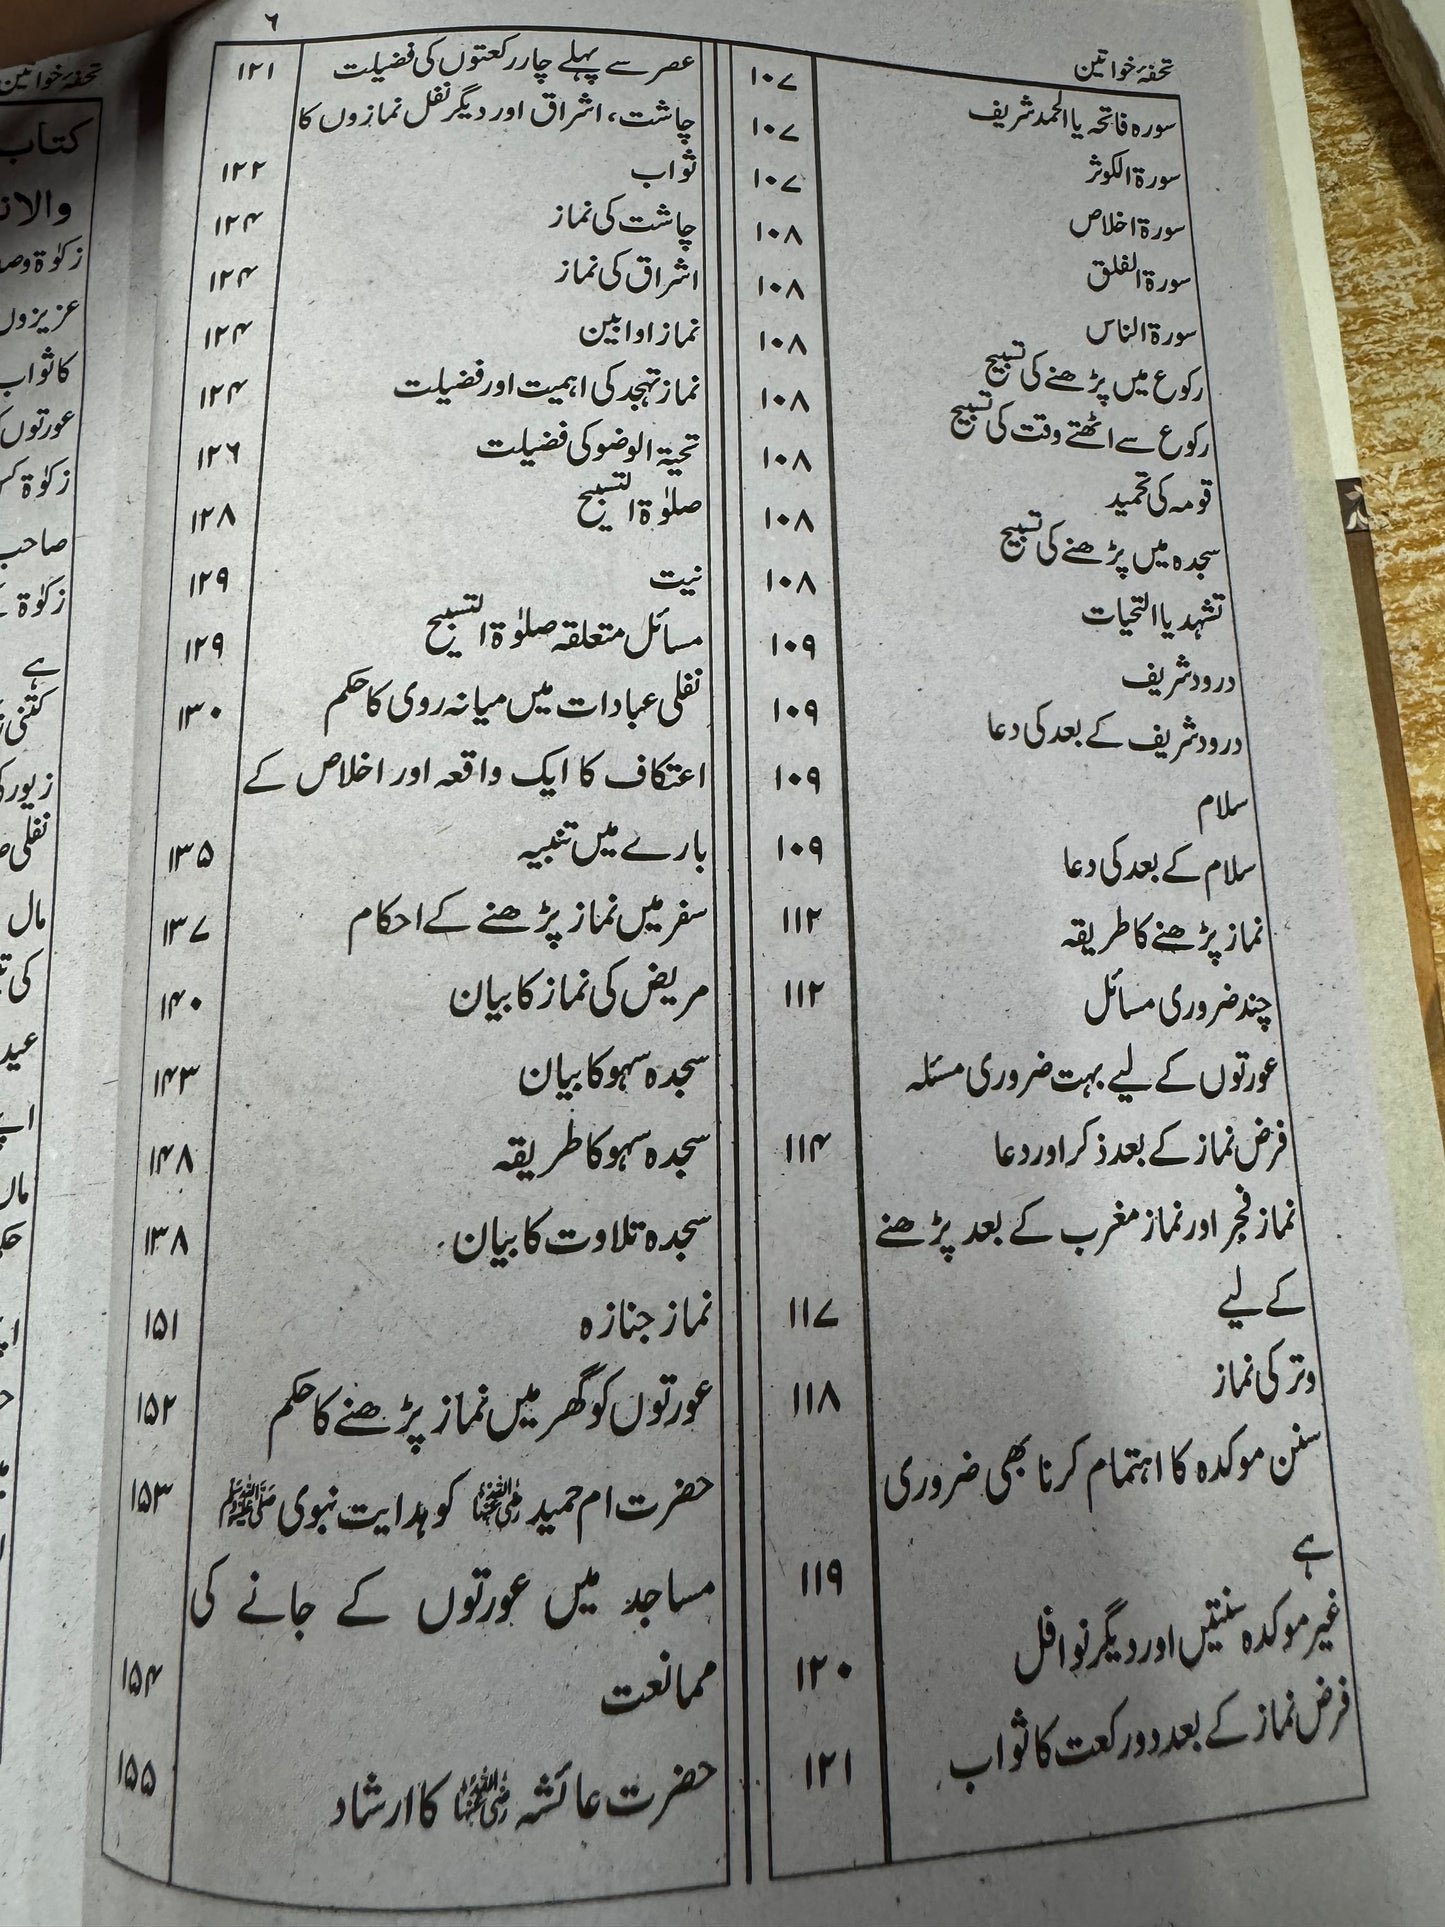 تحفۂ خواتین
۶
سورہ فاتحہ یا الحمد شریف ۱۰۷
سورۃ الکوثر ۱۰۷
سورۃ اخلاص ۱۰۷
سورۃ الفلق ۱۰۸
سورۃ الناس ۱۰۸
رکوع میں پڑھنے کی تسبیح ۱۰۸
رکوع سے اٹھتے وقت کی تسبیح ۱۰۸
قومہ کی تحمید ۱۰۸
سجدہ میں پڑھنے کی تسبیح ۱۰۸
تشہد یا التحیات ۱۰۸
درود شریف ۱۰۹
درود شریف کے بعد کی دعا ۱۰۹
سلام ۱۰۹
سلام کے بعد کی دعا ۱۰۹
نماز پڑھنے کا طریقہ ۱۱۲
چند ضروری مسائل ۱۱۲
عورتوں کے لیے بہت ضروری مسئلہ
فرض نماز کے بعد ذکر اور دعا ۱۱۴
نماز فجر اور نماز مغرب کے بعد پڑھنے
کے لیے ۱۱۷
وتر کی نماز ۱۱۸
سنن موکدہ کا اہتمام کرنا بھی ضروری
ہے ۱۱۹
غیر موکدہ سنتیں اور دیگر نوافل ۱۲۰
فرض نماز کے بعد دو رکعت کا ثواب ۱۲۱
عصر سے پہلے چار رکعتوں کی فضیلت ۱۲۱
چاشت، اشراق اور دیگر نفل نمازوں کا
ثواب ۱۲۲
چاشت کی نماز ۱۲۴
اشراق کی نماز ۱۲۴
نماز اوابین ۱۲۴
نماز تہجد کی اہمیت اور فضیلت ۱۲۴
تحیۃ الوضو کی فضیلت ۱۲۶
صلوٰۃ التسبیح ۱۲۸
نیت ۱۲۹
مسائل متعلقہ صلوٰۃ التسبیح ۱۲۹
نفلی عبادات میں میانہ روی کا حکم ۱۳۰
اعتکاف کا ایک واقعہ اور اخلاص کے
بارے میں تنبیہ ۱۳۵
سفر میں نماز پڑھنے کے احکام ۱۳۷
مریض کی نماز کا بیان ۱۴۰
سجدہ سہو کا بیان ۱۴۳
سجدہ سہو کا طریقہ ۱۴۸
سجدہ تلاوت کا بیان ۱۳۸
نماز جنازہ ۱۵۱
عورتوں کو گھر میں نماز پڑھنے کا حکم ۱۵۲
حضرت ام حمید رضی اللہ عنہا کو ہدایت نبوی ﷺ ۱۵۳
مساجد میں عورتوں کے جانے کی
ممانعت ۱۵۴
حضرت عائشہ رضی اللہ عنہا کا ارشاد ۱۵۵
تحفۂ خواتین
کتاب
زکوٰۃ
عزیزوں
کا ثواب
زکوٰۃ
صاحب
زکوٰۃ
ہے
نفلی
مال
کی
عید